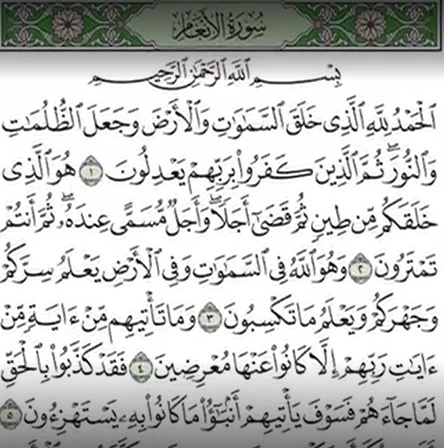 سُورَةُ الأَنْعَامِ
بِسْمِ ٱللَّهِ ٱلرَّحْمَٰنِ ٱلرَّحِيمِ
ٱلْحَمْدُ لِلَّهِ ٱلَّذِى خَلَقَ ٱلسَّمَٰوَٰتِ وَٱلْأَرْضَ وَجَعَلَ ٱلظُّلُمَٰتِ
وَٱلنُّورَ ۖ ثُمَّ ٱلَّذِينَ كَفَرُوا۟ بِرَبِّهِمْ يَعْدِلُونَ ١ هُوَ ٱلَّذِى
خَلَقَكُم مِّن طِينٍ ثُمَّ قَضَىٰٓ أَجَلًا ۖ وَأَجَلٌ مُّسَمًّى عِندَهُۥ ۖ ثُمَّ أَنتُمْ
تَمْتَرُونَ ٢ وَهُوَ ٱللَّهُ فِى ٱلسَّمَٰوَٰتِ وَفِى ٱلْأَرْضِ يَعْلَمُ سِرَّكُمْ
وَجَهْرَكُمْ وَيَعْلَمُ مَا تَكْسِبُونَ ٣ وَمَا تَأْتِيهِم مِّنْ ءَايَةٍ مِّنْ
ءَايَٰتِ رَبِّهِمْ إِلَّا كَانُوا۟ عَنْهَا مُعْرِضِينَ ٤ فَقَدْ كَذَّبُوا۟ بِٱلْحَقِّ
لَمَّا جَآءَهُمْ فَسَوْفَ يَأْتِيهِمْ أَنۢبَٰٓؤُا۟ مَا كَانُوا۟ بِهِۦ يَسْتَهْزِءُونَ ٥